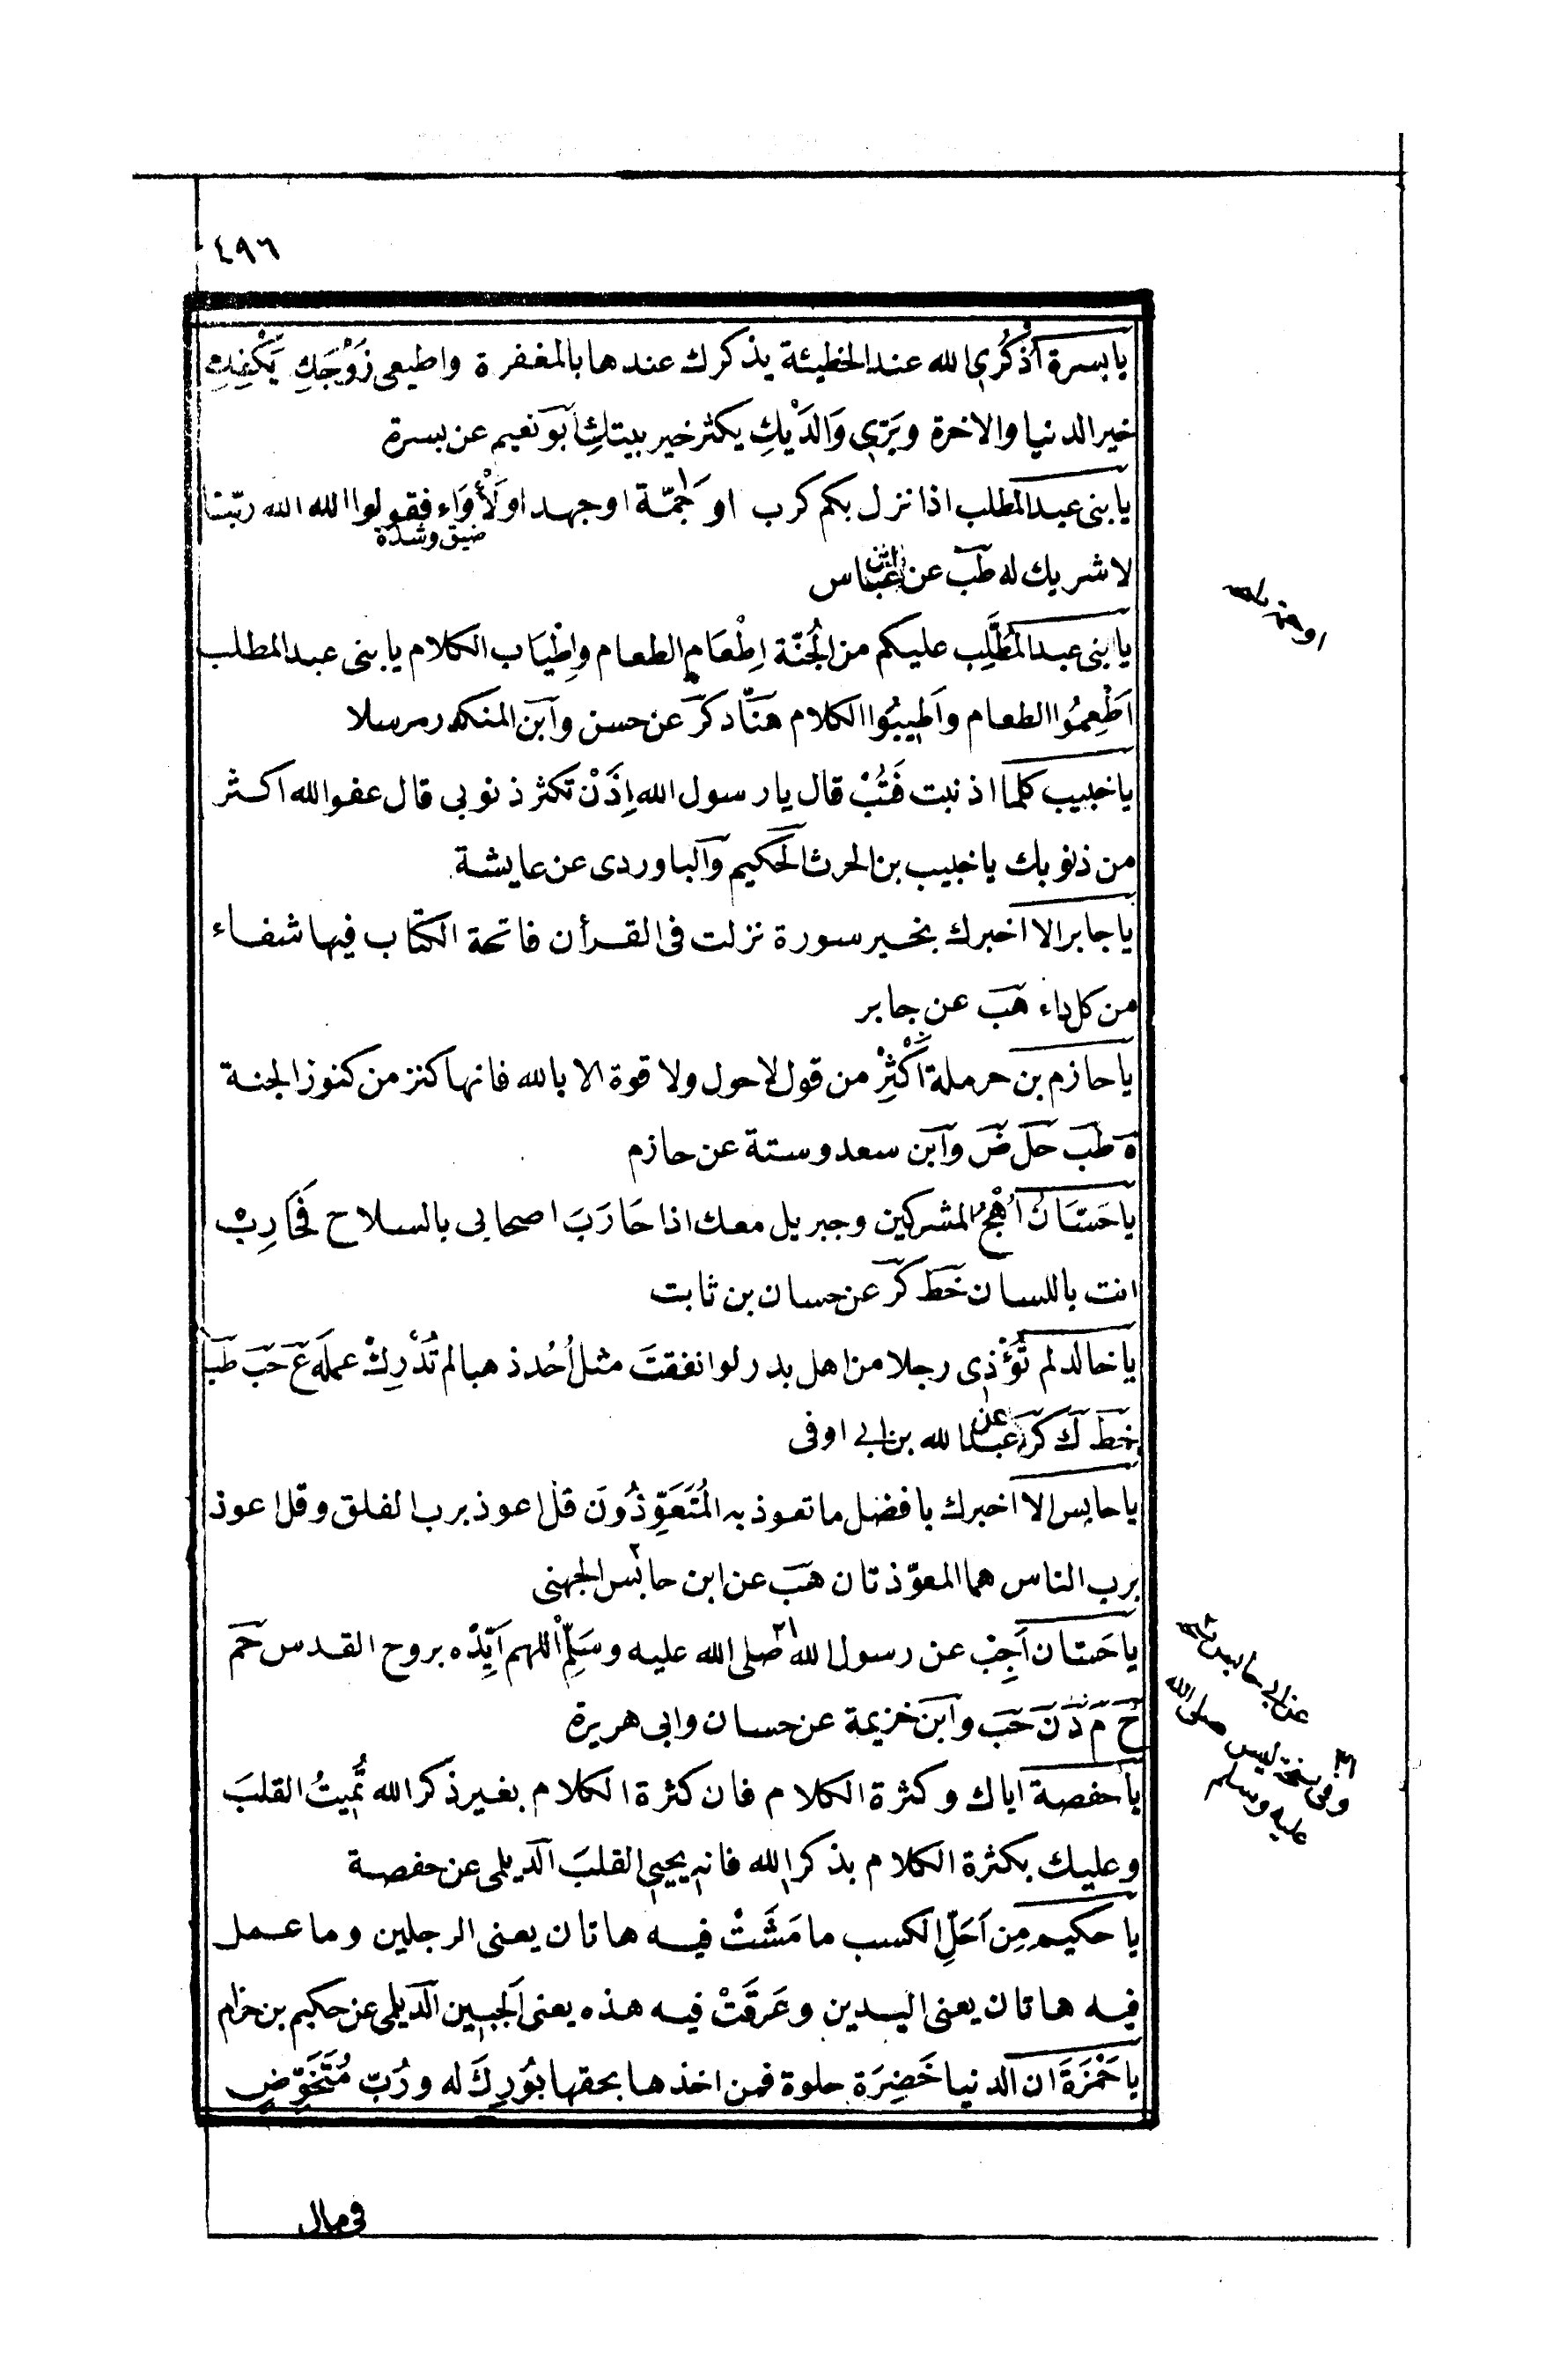 ٤٩٦
يا بسرة اذْكُرِى الله عند الخطيئة يذكرك عندها بالمغفرة واطيعى زَوْجَكِ يَكْفِكِ
خير الدنيا والاخرة وبَرِّى وَالدَيْكِ يكثر خير بيتكِ ابو نعيم عن بسرة
يا بنى عبد المطلب اذا نزل بكم كرب او جَمّة اوجهد او لَأْوَاء فقولوا الله الله ربّنا
ضيق وشدة
لا شريك له طب عن ابن عباس
او حمة
يا بنى عبد المُطَّلِب عليكم من الجُنّة اِطْعَام الطعام واِطْيَاب الكلام يا بنى عبد المطلب
اَطْعِمُوا الطعام واَطِيبُوا الكلام هنّاد كر عن حسن وابن المنكدر مرسلا
يا خبيب كلما اذنبت فَتُبْ قال يا رسول الله اِذَنْ تكثر ذنوبى قال عفو الله اكثر
من ذنوبك يا خبيب بن الحرث الحكيم والباوردى عن عايشة
يا جابر الا اخبرك بخير سورة نزلت فى القرأن فاتحة الكتاب فيها شفاء
من كل داء هب عن جابر
يا حازم بن حرملة اَكْثِرْ من قول لا حول ولا قوة الا بالله فانها كنز من كنوز الجنة
ه طب حل ض وابن سعد وستة عن حازم
يا حَسّانُ اُهْجُ المشركين وجبريل معك اذا حَارَبَ اصحابى بالسلاح فَحَارِبْ
انت باللسان خط كر عن حسان بن ثابت
يا خالد لم تُؤْذِى رجلا من اهل بدر لو انفقتَ مثل اُحُد ذهبا لم تُدْرِكْ عمله ع حب طب
خط ك كر عن عبد الله بن ابى اوفى
يا حابس الا اخبرك بافضل ما تعوذ به المُتَعَوِّذُونَ قل اعوذ برب الفلق وقل اعوذ
برب الناس هما المعوّذتان هب عن ابن حابس الجهنى
يا حَسّان اَجِبْ عن رسول الله صلى الله عليه وسَلِّمْ اللهم اَيِّدْه بروح القدس حم
خ م د ن حب وابن خزيمة عن حسان وابى هريرة
عن ابى حابس
وفى نسخة ليس صلى الله
عليه وسلم
يا حفصة اياك وكثرة الكلام فان كثرة الكلام بغير ذكر الله تُمِيتُ القلبَ
وعليك بكثرة الكلام بذكر الله فانه يحيى القلبَ الديلمى عن حفصة
يا حكيم مِن اَحَلِّ الكسب ما مَشَتْ فيه هاتان يعنى الرجلين وما عمل
فيه هاتان يعنى اليدين وعَرقَتْ فيه هذه يعنى الجبين الديلمى عن حكيم بن حزام
يا حَمْزَةَ ان الدنيا خَضِرَة حلوة فمن اخذها بحقها بُورِكَ له ورُبّ مُتَخَوِّضٍ
فى مال